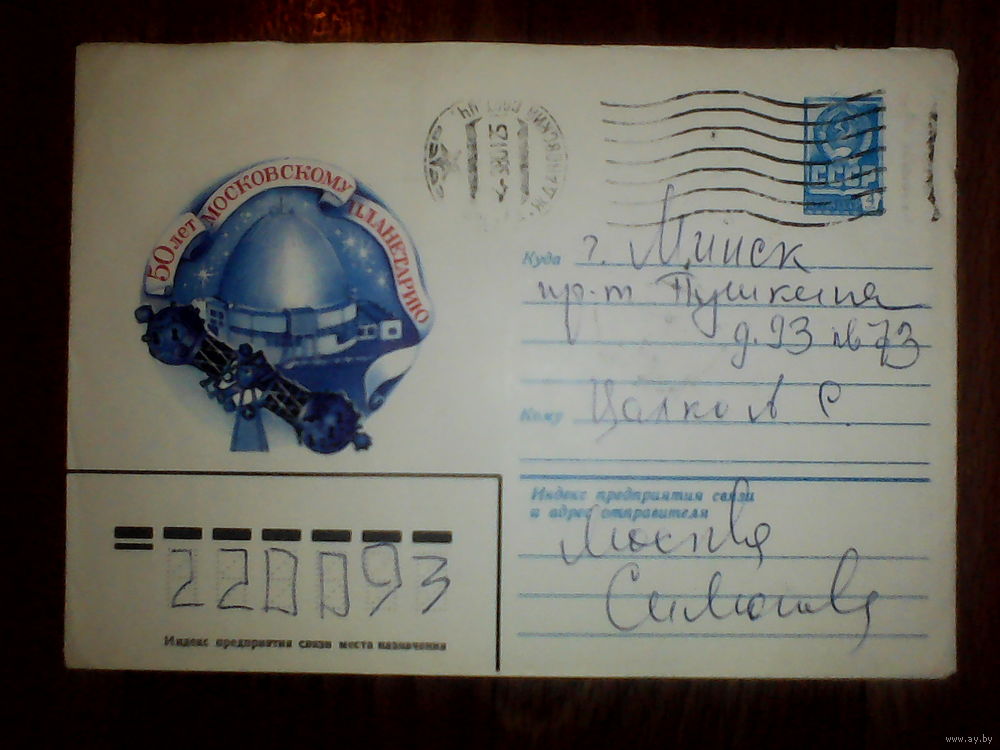 50 лет МОСКОВСКОМУ ПЛАНЕТАРИЮ
СССР
4
Куда г. Минск
пр-т Пушкина
д. 93 кв 73
Кому
Индекс предприятия связи
и адрес отправителя
Москва
220093
Индекс предприятия связи места назначения
www.ay.by